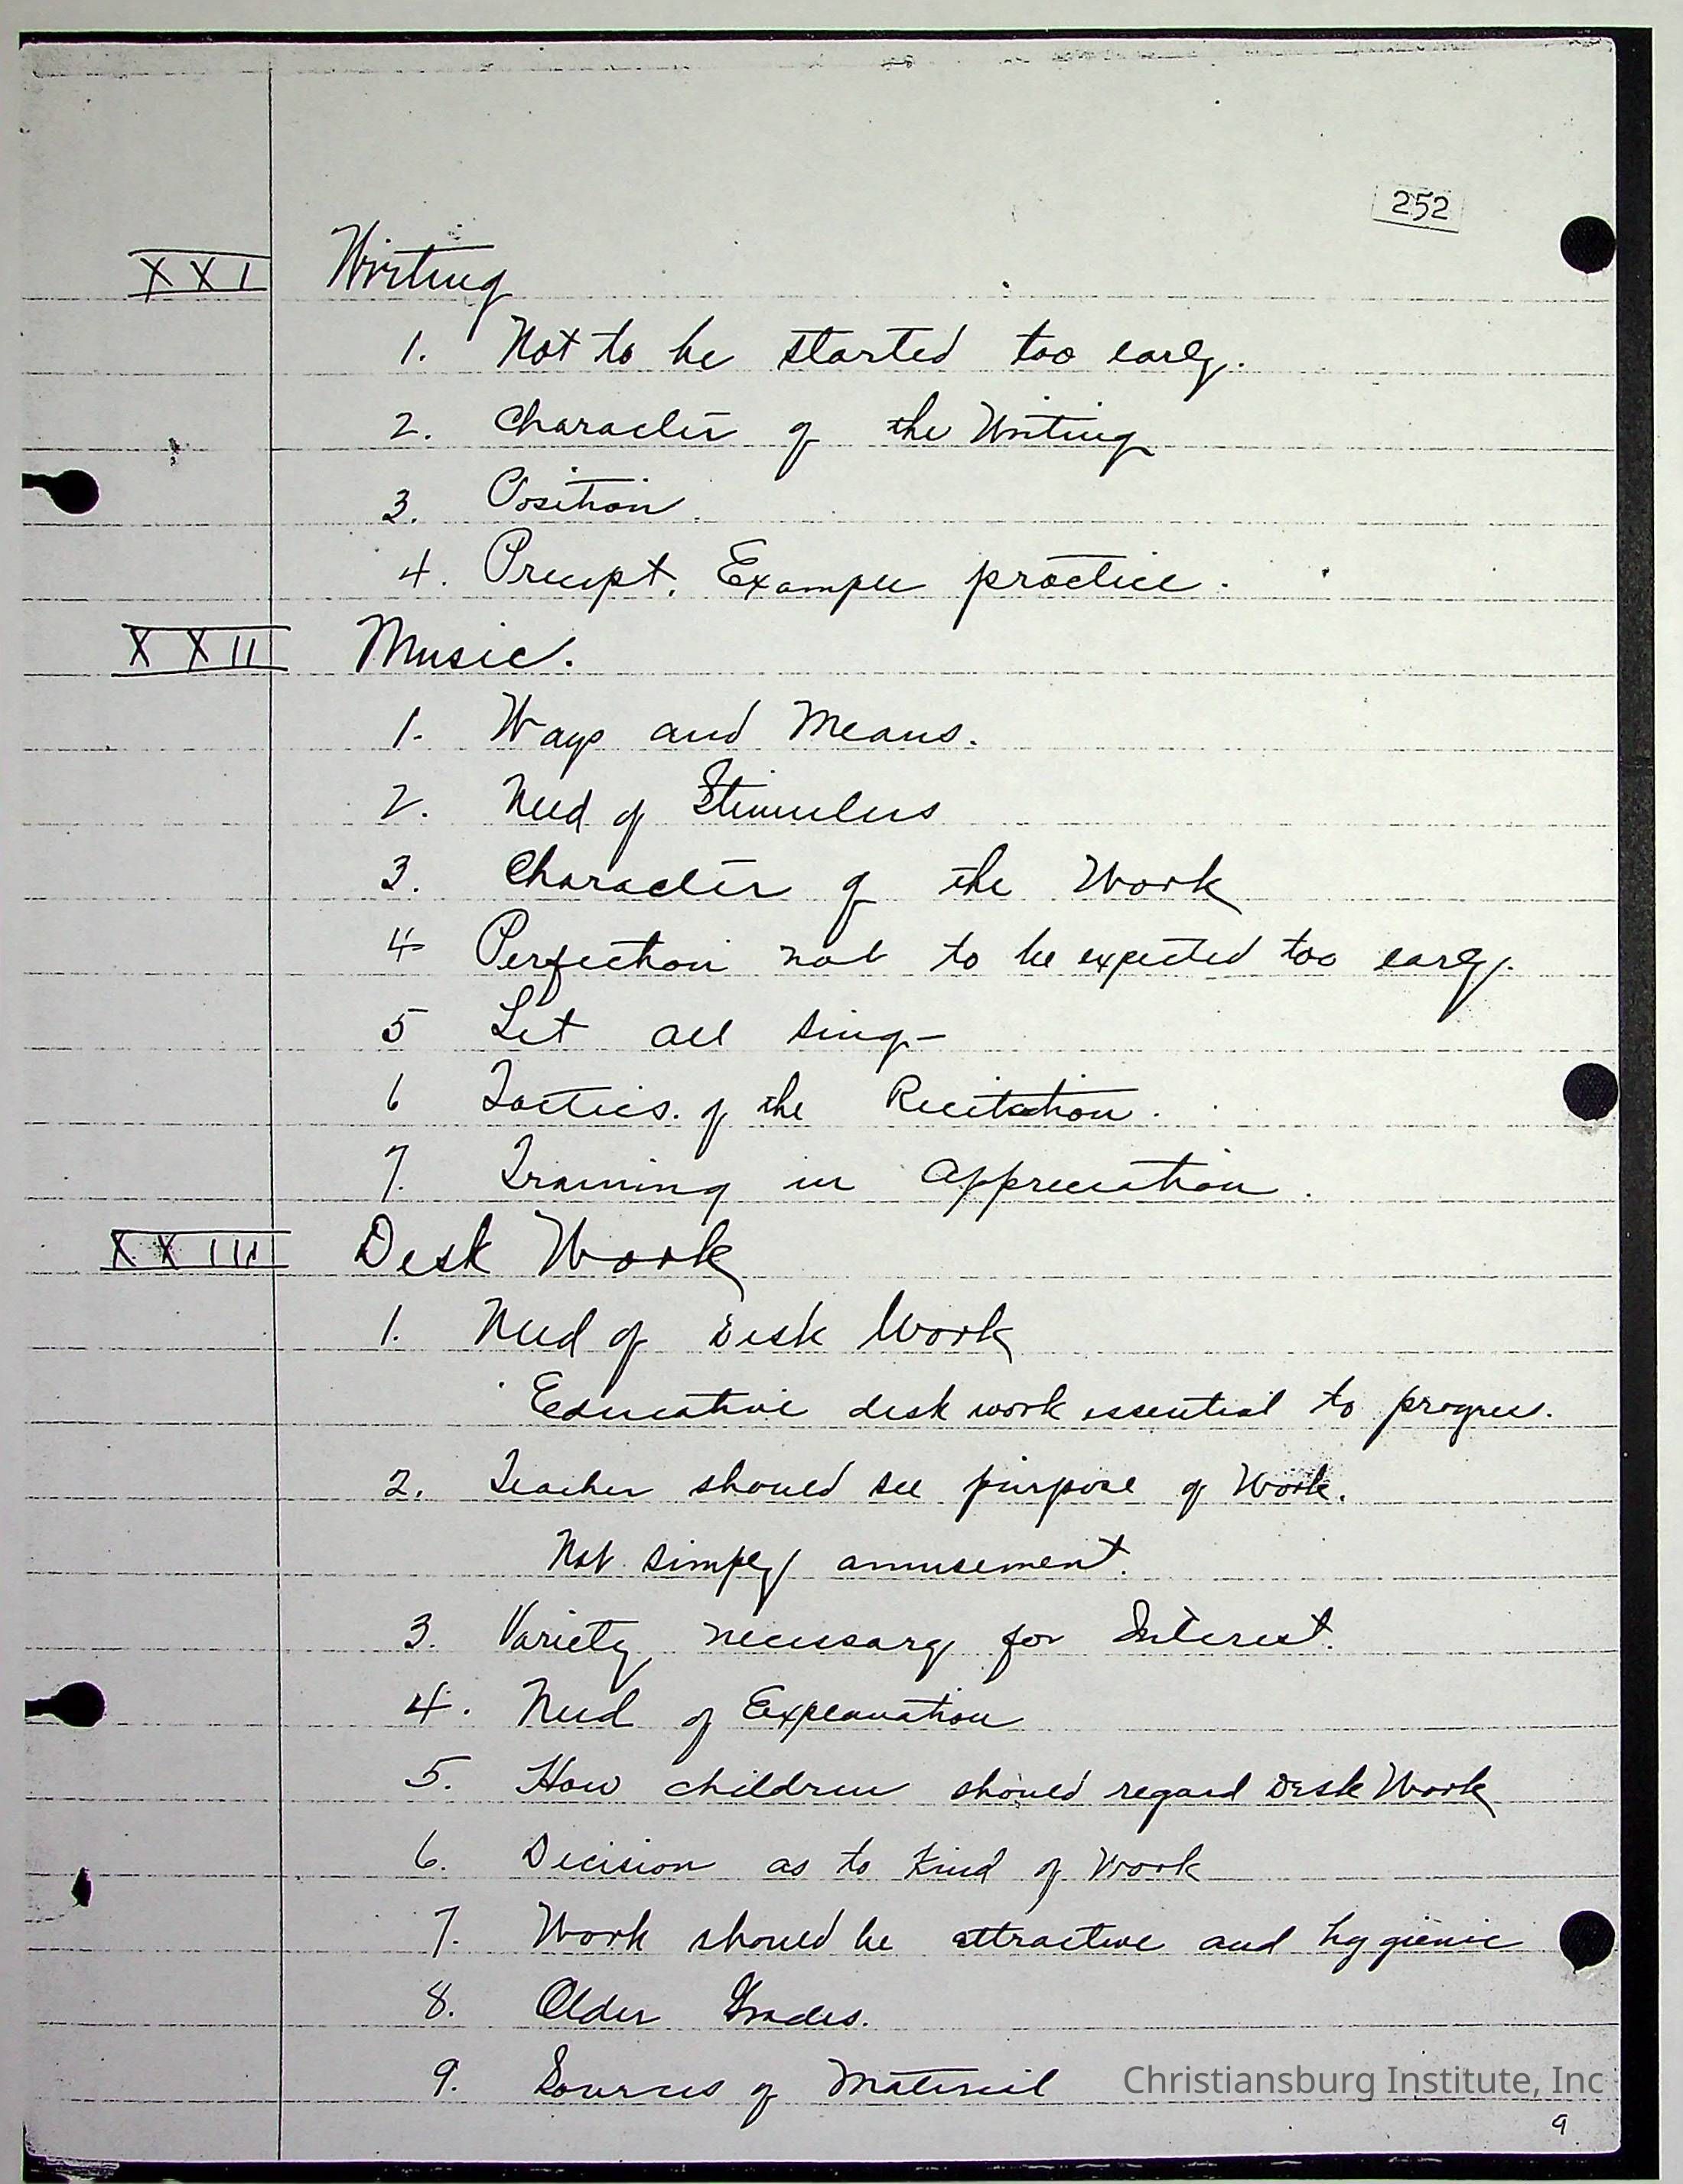 252
XXI Writing
1. Not to be started too early.
2. Character of the Writing
3. Position.
4. Precept. Example practice.
XXII Music.
1. Ways and Means.
2. Need of Stimulus
3. Character of the Work
4 Perfection not to be expected too early.
5 Let all sing-
6 Tactics. of the Recitation.
7. Training in Appreciation.
XXIII Desk Work
1. Need of Desk Work
Educative desk work essential to progress.
2. Teacher should see purpose of Work.
Not simply amusement.
3. Variety necessary for Interest.
4. Need of Explanation
5. How children should regard Desk Work
6. Decision as to Kind of Work
7. Work should be attractive and hygienic
8. Older Grades.
9. Sources of Material
Christiansburg Institute, Inc
9